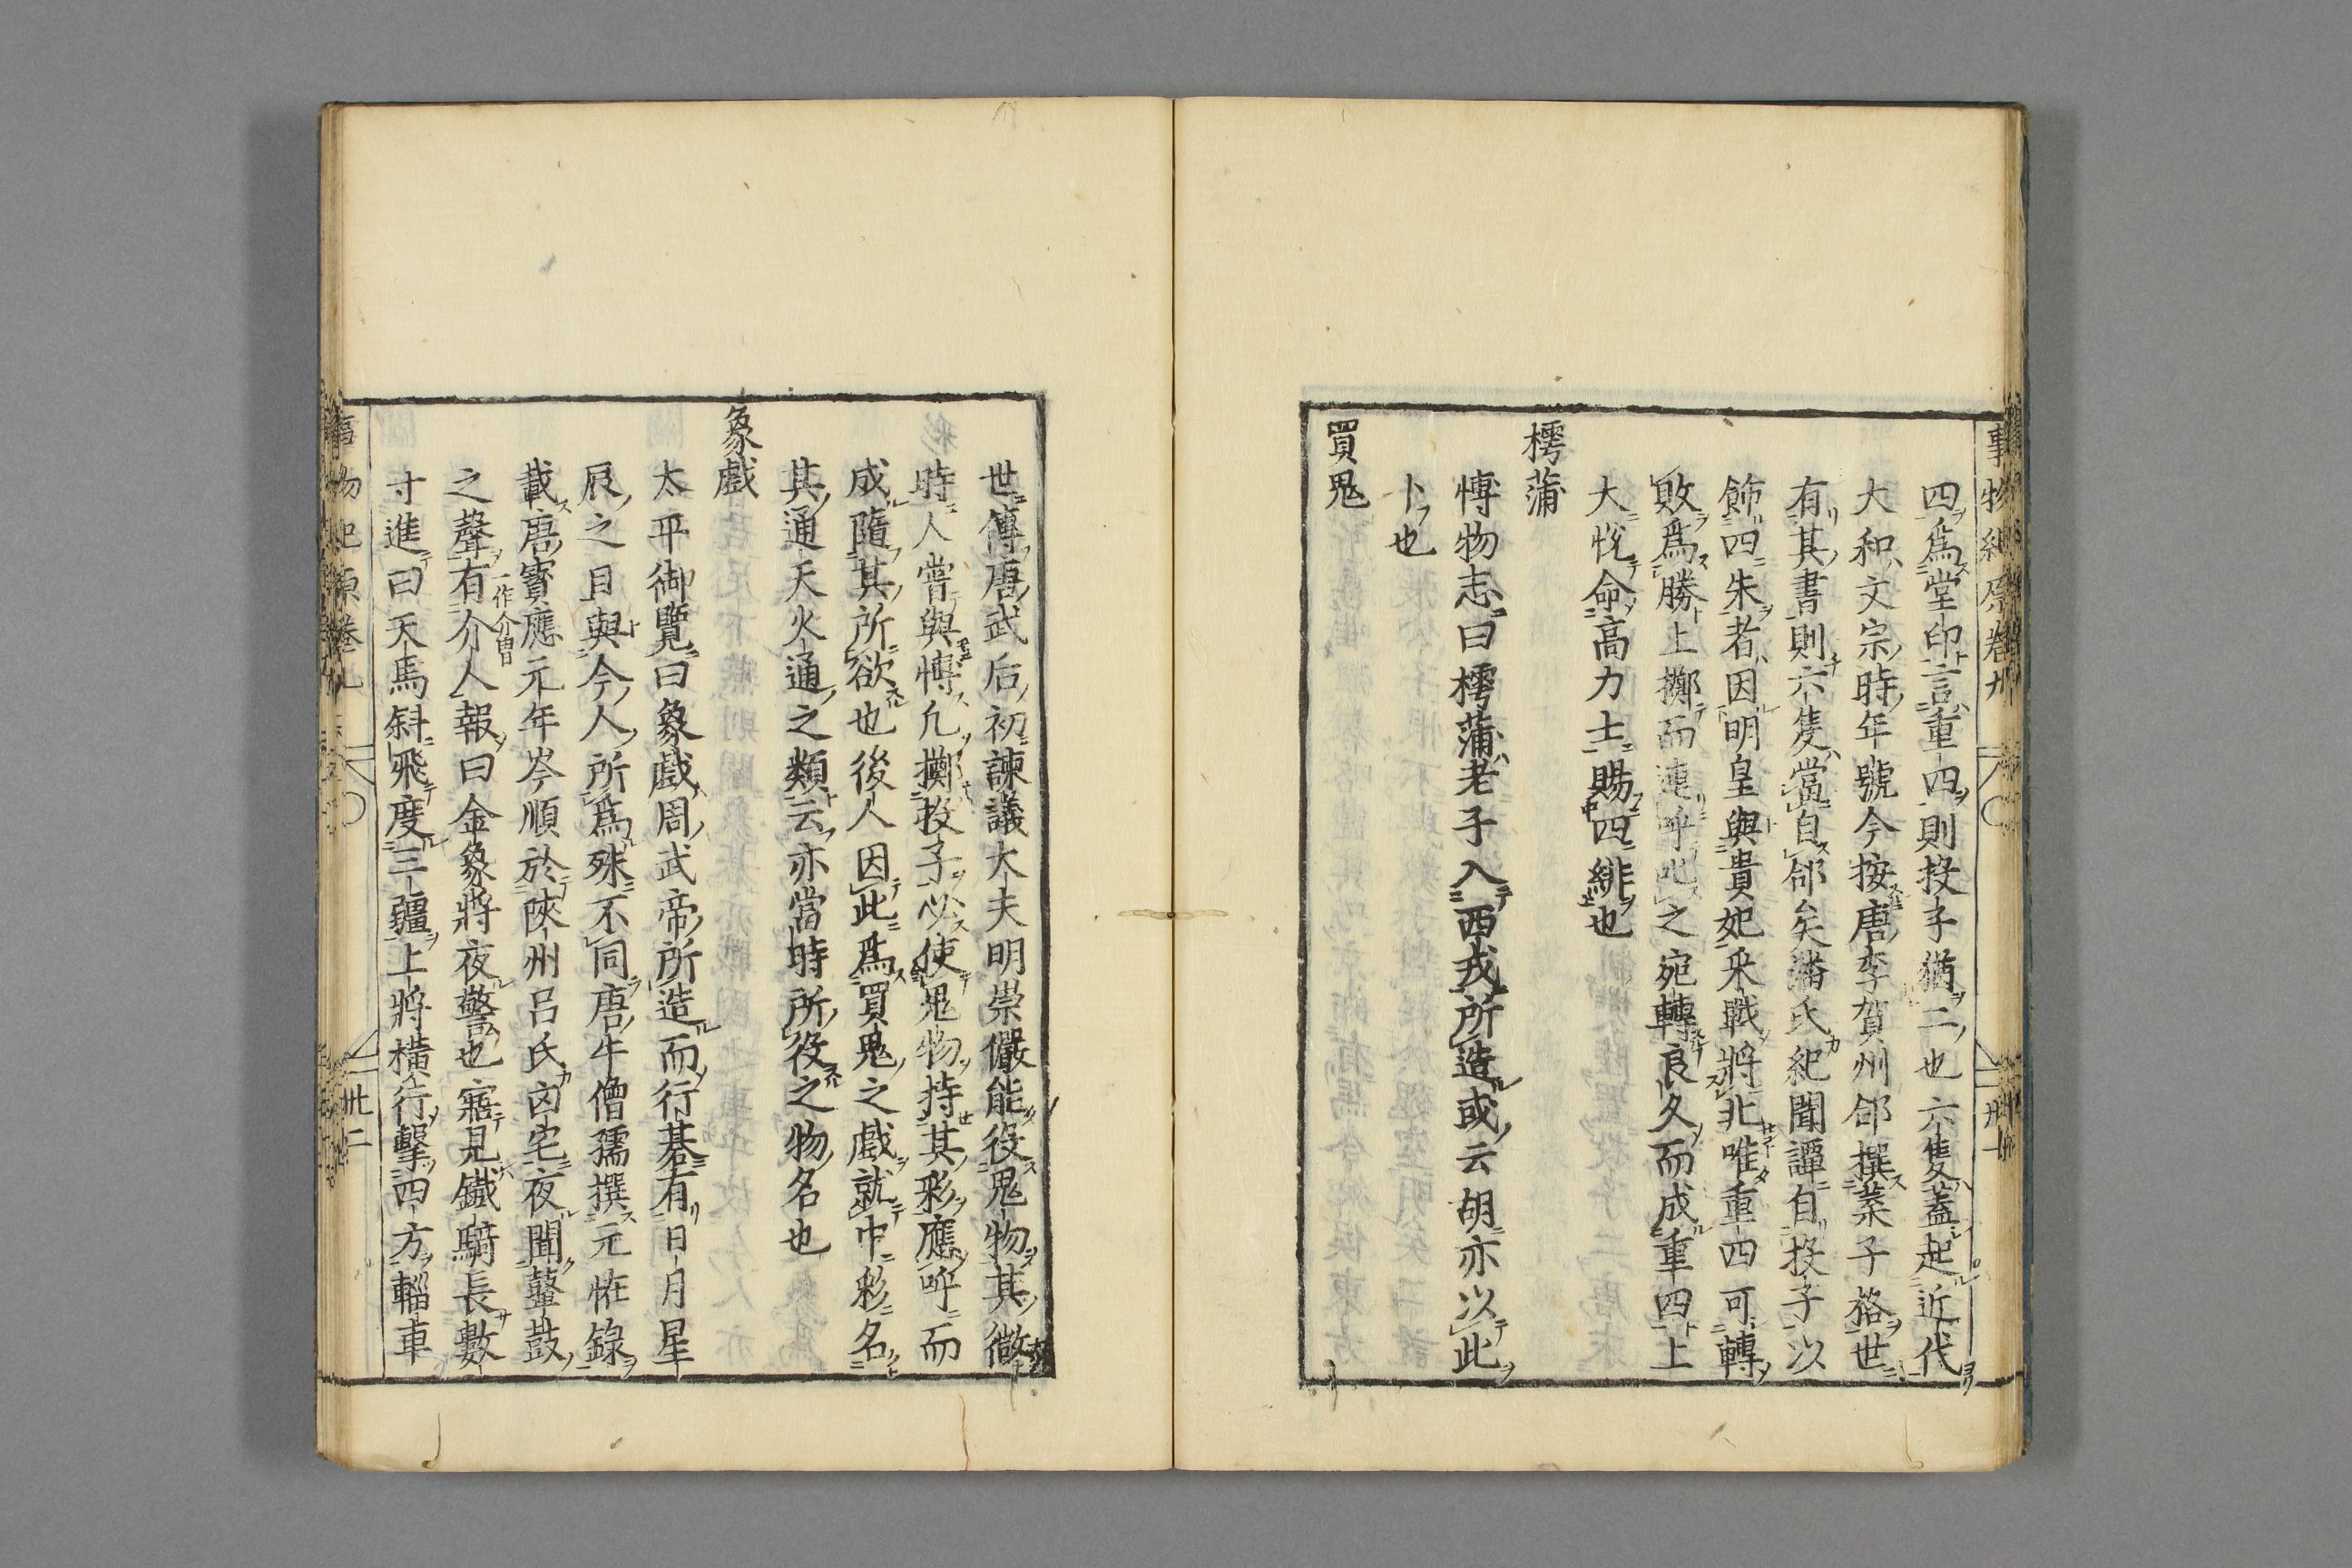 事物紀原卷九
四爲堂印言重四則投子猶二也六隻蓋起近代
大和文宗時年號今按唐李賀州郃撰葉子格世
有其書則六隻當自郃矣潘氏紀聞譚自投子以
飾四朱者因明皇與貴妃采戰將北唯重四可轉
敗爲勝上擲而連呼叱之宛轉良久而成重四上
大悅命高力士賜四緋也
樗蒲
博物志曰樗蒲老子入西戎所造或云胡亦以此
卜也
買鬼
世傳唐武后初諫議大夫明崇儼能役鬼物其徵
時人嘗與博凡擲投子必使鬼物持其彩應呼而
成隨其所欲也後人因此爲買鬼之戲就中彩名
其通天火通之類云亦當時所役之物名也
象戲
太平御覽曰象戲周武帝所造而行棊有日月星
辰之目與今人所爲殊不同唐牛僧孺撰元怪錄
載唐寶應元年岑順於陝州呂氏凶宅夜聞鼙鼓
之聲有介人報曰金象將夜警也寤見鐵騎長數
一作介冑
寸進曰天馬斜飛度三疆上將橫行擊四方輜車
事物紀原卷九
卌二